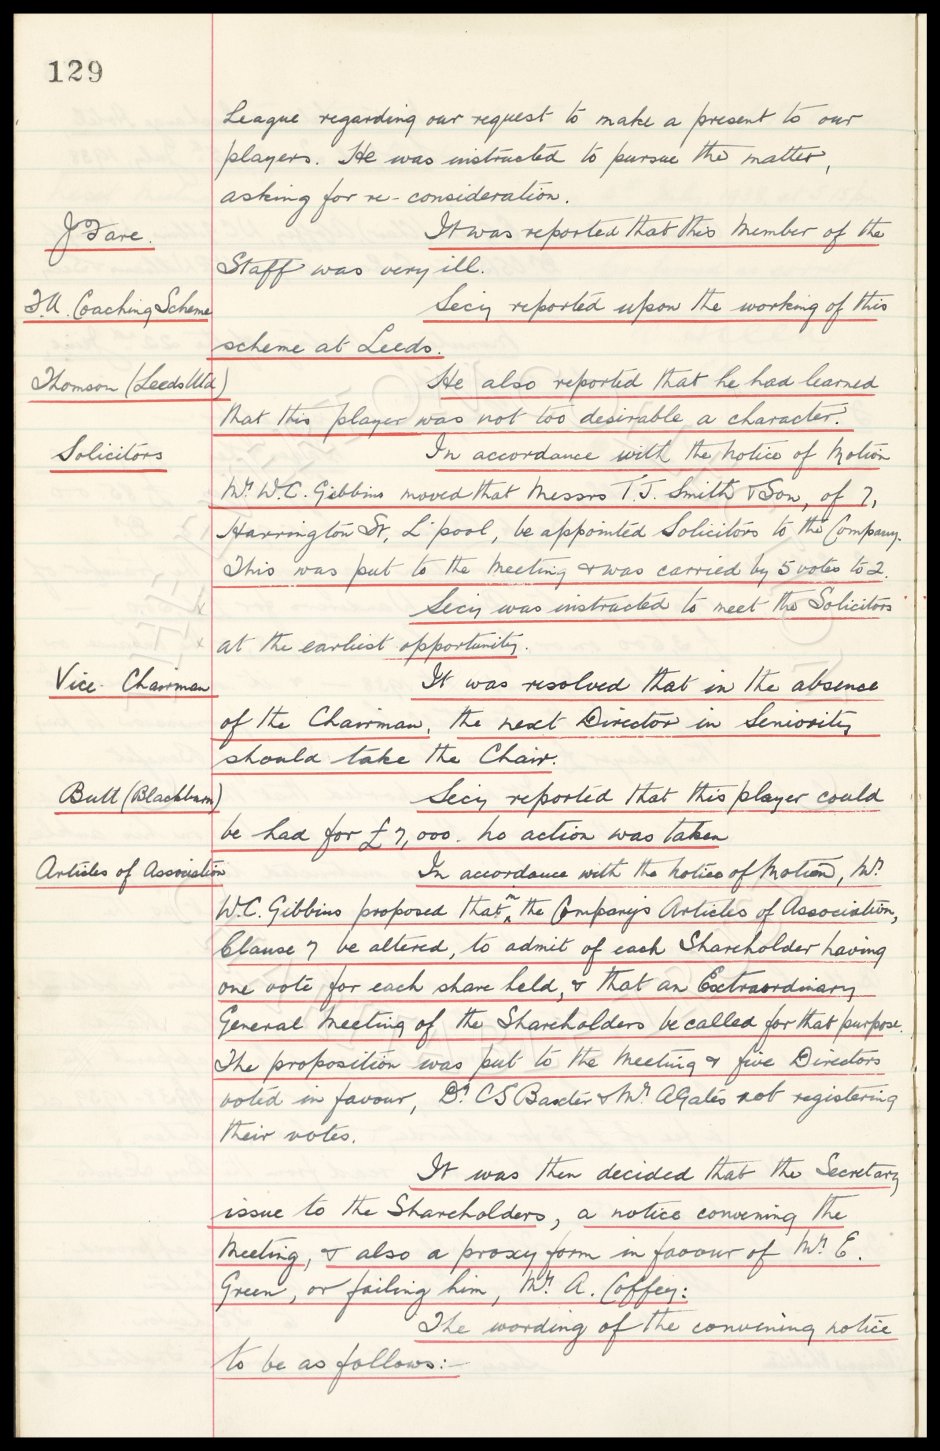 129
League regarding our request to make a present to our
players. He was instructed to pursue the matter,
asking for re-consideration.
J Fare. It was reported that this Member of the
Staff was very ill.
F.A. Coaching Scheme Secy reported upon the working of this
scheme at Leeds.
Thomson (Leeds Utd) He also reported that he had learned
that this player was not too desirable a character.
Solicitors In accordance with the Notice of Motion
Mr. W.C. Gibbins moved that Messrs T.J. Smith & Son, of 7,
Harrington St, L'pool, be appointed Solicitors to the Company.
This was put to the Meeting & was carried by 5 votes to 2.
Secy was instructed to meet the Solicitors
at the earliest opportunity.
Vice-Chairman It was resolved that in the absence
of the Chairman, the next Director in Seniority
should take the Chair.
Butt (Blackburn) Secy reported that this player could
be had for £7,000. No action was taken
Articles of Association In accordance with the Notice of Motion, Mr.
W.C. Gibbins proposed that the Company's Articles of Association,
Clause 7 be altered, to admit of each Shareholder having
one vote for each share held, & that an Extraordinary
General Meeting of the Shareholders be called for that purpose.
The proposition was put to the Meeting & five Directors
voted in favour, Dr. C S Baxter & Mr. A Gates not registering
their votes.
It was then decided that the Secretary
issue to the Shareholders, a notice convening the
Meeting, & also a proxy form in favour of Mr. E.
Green, or failing him, Mr. A. Coffey:
The wording of the convening notice
to be as follows:-